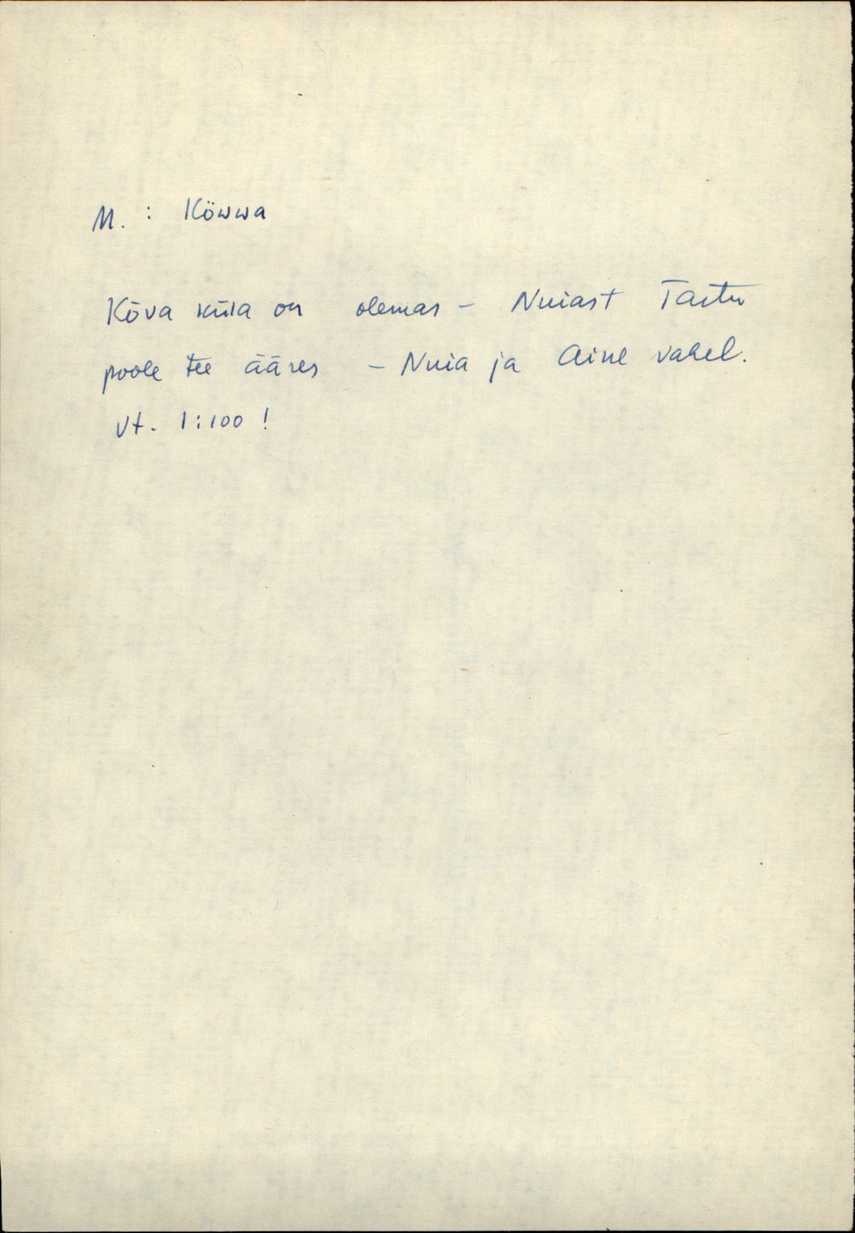 M. : Köwwa
Kõva küla on olemas - Nuiast Tartu
poole tee ääres - Nuia ja Aine vahel.
Vt. 1:100 !